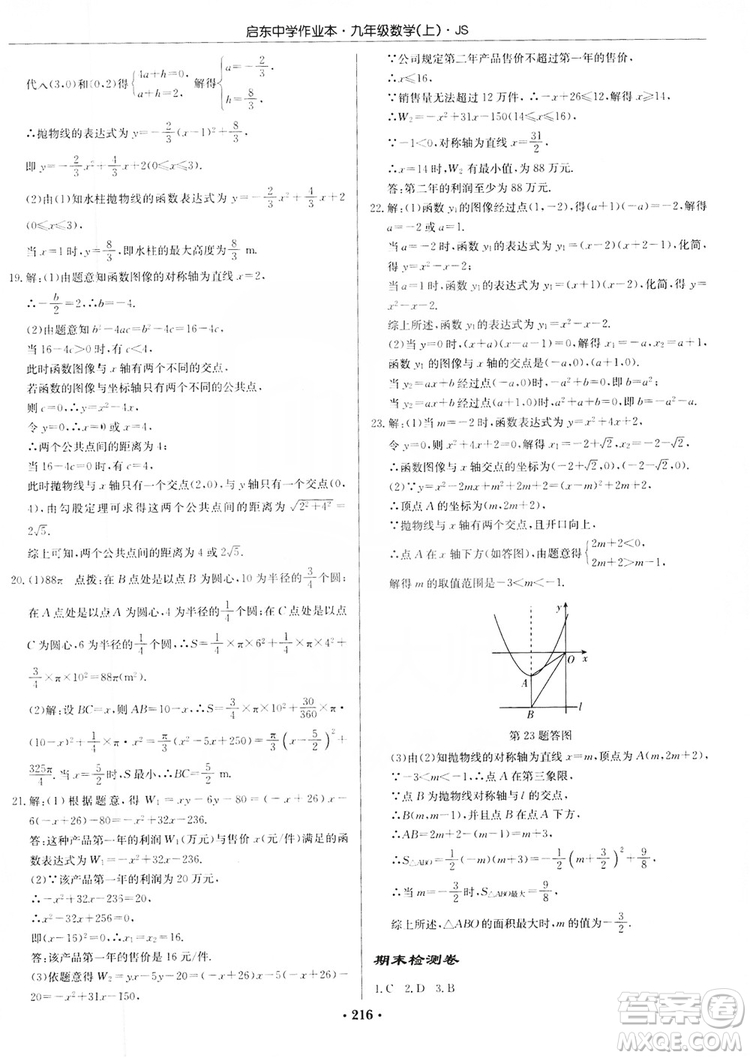 启东中学作业本·九年级数学(上)·JS
代入(3,0)和(2,2)得{4a+h=0, a+h=2. 解得{a=-2/3, h=8/3.
∴抛物线的表达式为 y=-2/3(x-1)²+8/3.
即 y=-2/3x²+4/3x+2(0≤x≤3).
(2)由(1)知水柱抛物线的函数表达式为 y=-2/3x²+4/3x+2
(0≤x≤3).
当 x=1时,y=8/3,即水柱的最大高度为8/3 m.
19.解:(1)由题意知函数图像的对称轴为直线 x=2,
∴-b/2=2.∴b=-4.
(2)由题意知 b²-4ac=b²-4c=16-4c.
当16-4c>0时,c<4,
此时函数图像与 x 轴有两个不同的交点.
若函数图像与坐标轴只有两个不同的公共点,
则 c=0,∴y=x²-4x.
令 y=0,∴x=0或x=4.
∴两个公共点间的距离为4;
当16-4c=0时,c=4,
此时抛物线与 x 轴只有一个交点(2,0),与 y 轴的交点为(0,4),由勾股定理可以求这两个公共点间的距离为√2²+4²=
2√5.
综上可知,两个公共点间的距离为4或2√5.
20.(1)88π 点拨:在 B 点处是以点 B 为圆心,10为半径的3/4个圆;
在 A 点处是以点 A 为圆心,4为半径的1/4个圆;在 C 点处是以点
C 为圆心,6为半径的1/4个圆.∴S=3/4×π×10²+1/4×π×6²+1/4×
π×4²=88π(m²).
(2)解:设 BC=x,则 AB=10-x,∴S=3/4×π×10²+30/360×π×x²+1/4×π×
(10-x)²=π/3(x²-5x+250)=π/3(x-5/2)²+
325π/4.当 x=5/2时,S最小,∴BC=5/2m.
21.解:(1)根据题意,得 W₁=xy-6y-80=x(-x+26)-
6(-x+26)-80=-x²+32x-236.
答:这种产品第一年的利润W₁(万元)与售价x(元/件)满足的函数表达式为 W₁=-x²+32x-236.
(2)∵该产品第一年的利润为20万元,
∴-x²+32x-236=20,
即(x-16)²=0,解得 x₁=x₂=16.
答:该产品第一年的售价为16元/件.
(3)依题意得 W₂=xy-5y-20=x(-x+26)-5(-x+26)-20=
-x²+31x-150.
∵公司规定第二年产品售价不超过第一年的售价,
∴x≤16.
∵销售量无法超过12万件,∴-x+26≤12,解得 x≥14.
∴W₂=-x²+31x-150(14≤x≤16).
∵-1<0,对称轴为直线 x=31/2,
∴x=14时,W₂有最小值,为88万元.
答:第二年的利润至少为88万元.
22.解:(1)函数 y₁的图像经过点(1,-2),得(a+1)(-a)=-2.
解得 a₁=-2,a₂=1.
当 a=-2时,函数 y₁的表达式为 y=(x-2)(x+2-1),化简,
得 y=x²-x-2;
当 a=1时,函数 y₁的表达式为 y=(x+1)(x-2),化简,得 y=
x²-x-2.
综上所述,函数 y₁的表达式为 y=x²-x-2.
(2)当 y=0时,(x+a)(x-a-1)=0,解得 x₁=-a,x₂=a+1.
当 y₂=ax+b 经过点(-a,0)时,-a²+b=0,即 b=a²;
当 y₂=ax+b 经过点(a+1,0)时,a²+a+b=0,即 b=-a²-a.
23.解:(1)当 m=-2时,y=x²+4x+2,
令 y=0,则 x²+4x+2=0,解得 x₁=-2+√2,x₂=-2-√2.
∴函数图像与 x 轴交点的坐标为(-2+√2,0),(-2-√2,0).
(2)∵y=x²-2mx+m²+2m+2=(x-m)²+2m+2,
∴顶点 A 的坐标为(m,2m+2).
∵抛物线与 x 轴有两个交点,且开口向上,
∴点 A 在 x 轴下方(如答图).∴{2m+2<0, 2m+2>m-1.
解得 m 的取值范围是-3<m<-1.
y
O x
A
B l
第23题答图
(3)由(2)知抛物线的对称轴为直线 x=m,顶点为 A(m,2m+2).
∵-3<m<-1,∴点 A 在第三象限.
∵点 B 为抛物线的对称轴与 l 的交点,
∴点 B(m,m-1),并且点 B 在点 A 的下方.
∴AB=2m+2-(m-1)=m+3.
∴S△ABO=1/2(-m)(m+3)=-1/2(m+3/2)²+9/8.
∴当 m=-3/2时,S△ABO最大=9/8.
综上所述,△ABO的面积最大时,m 的值为-3/2.
期末检测卷
1.C 2.D 3.B
·216·
答案圈
MXQE.COM